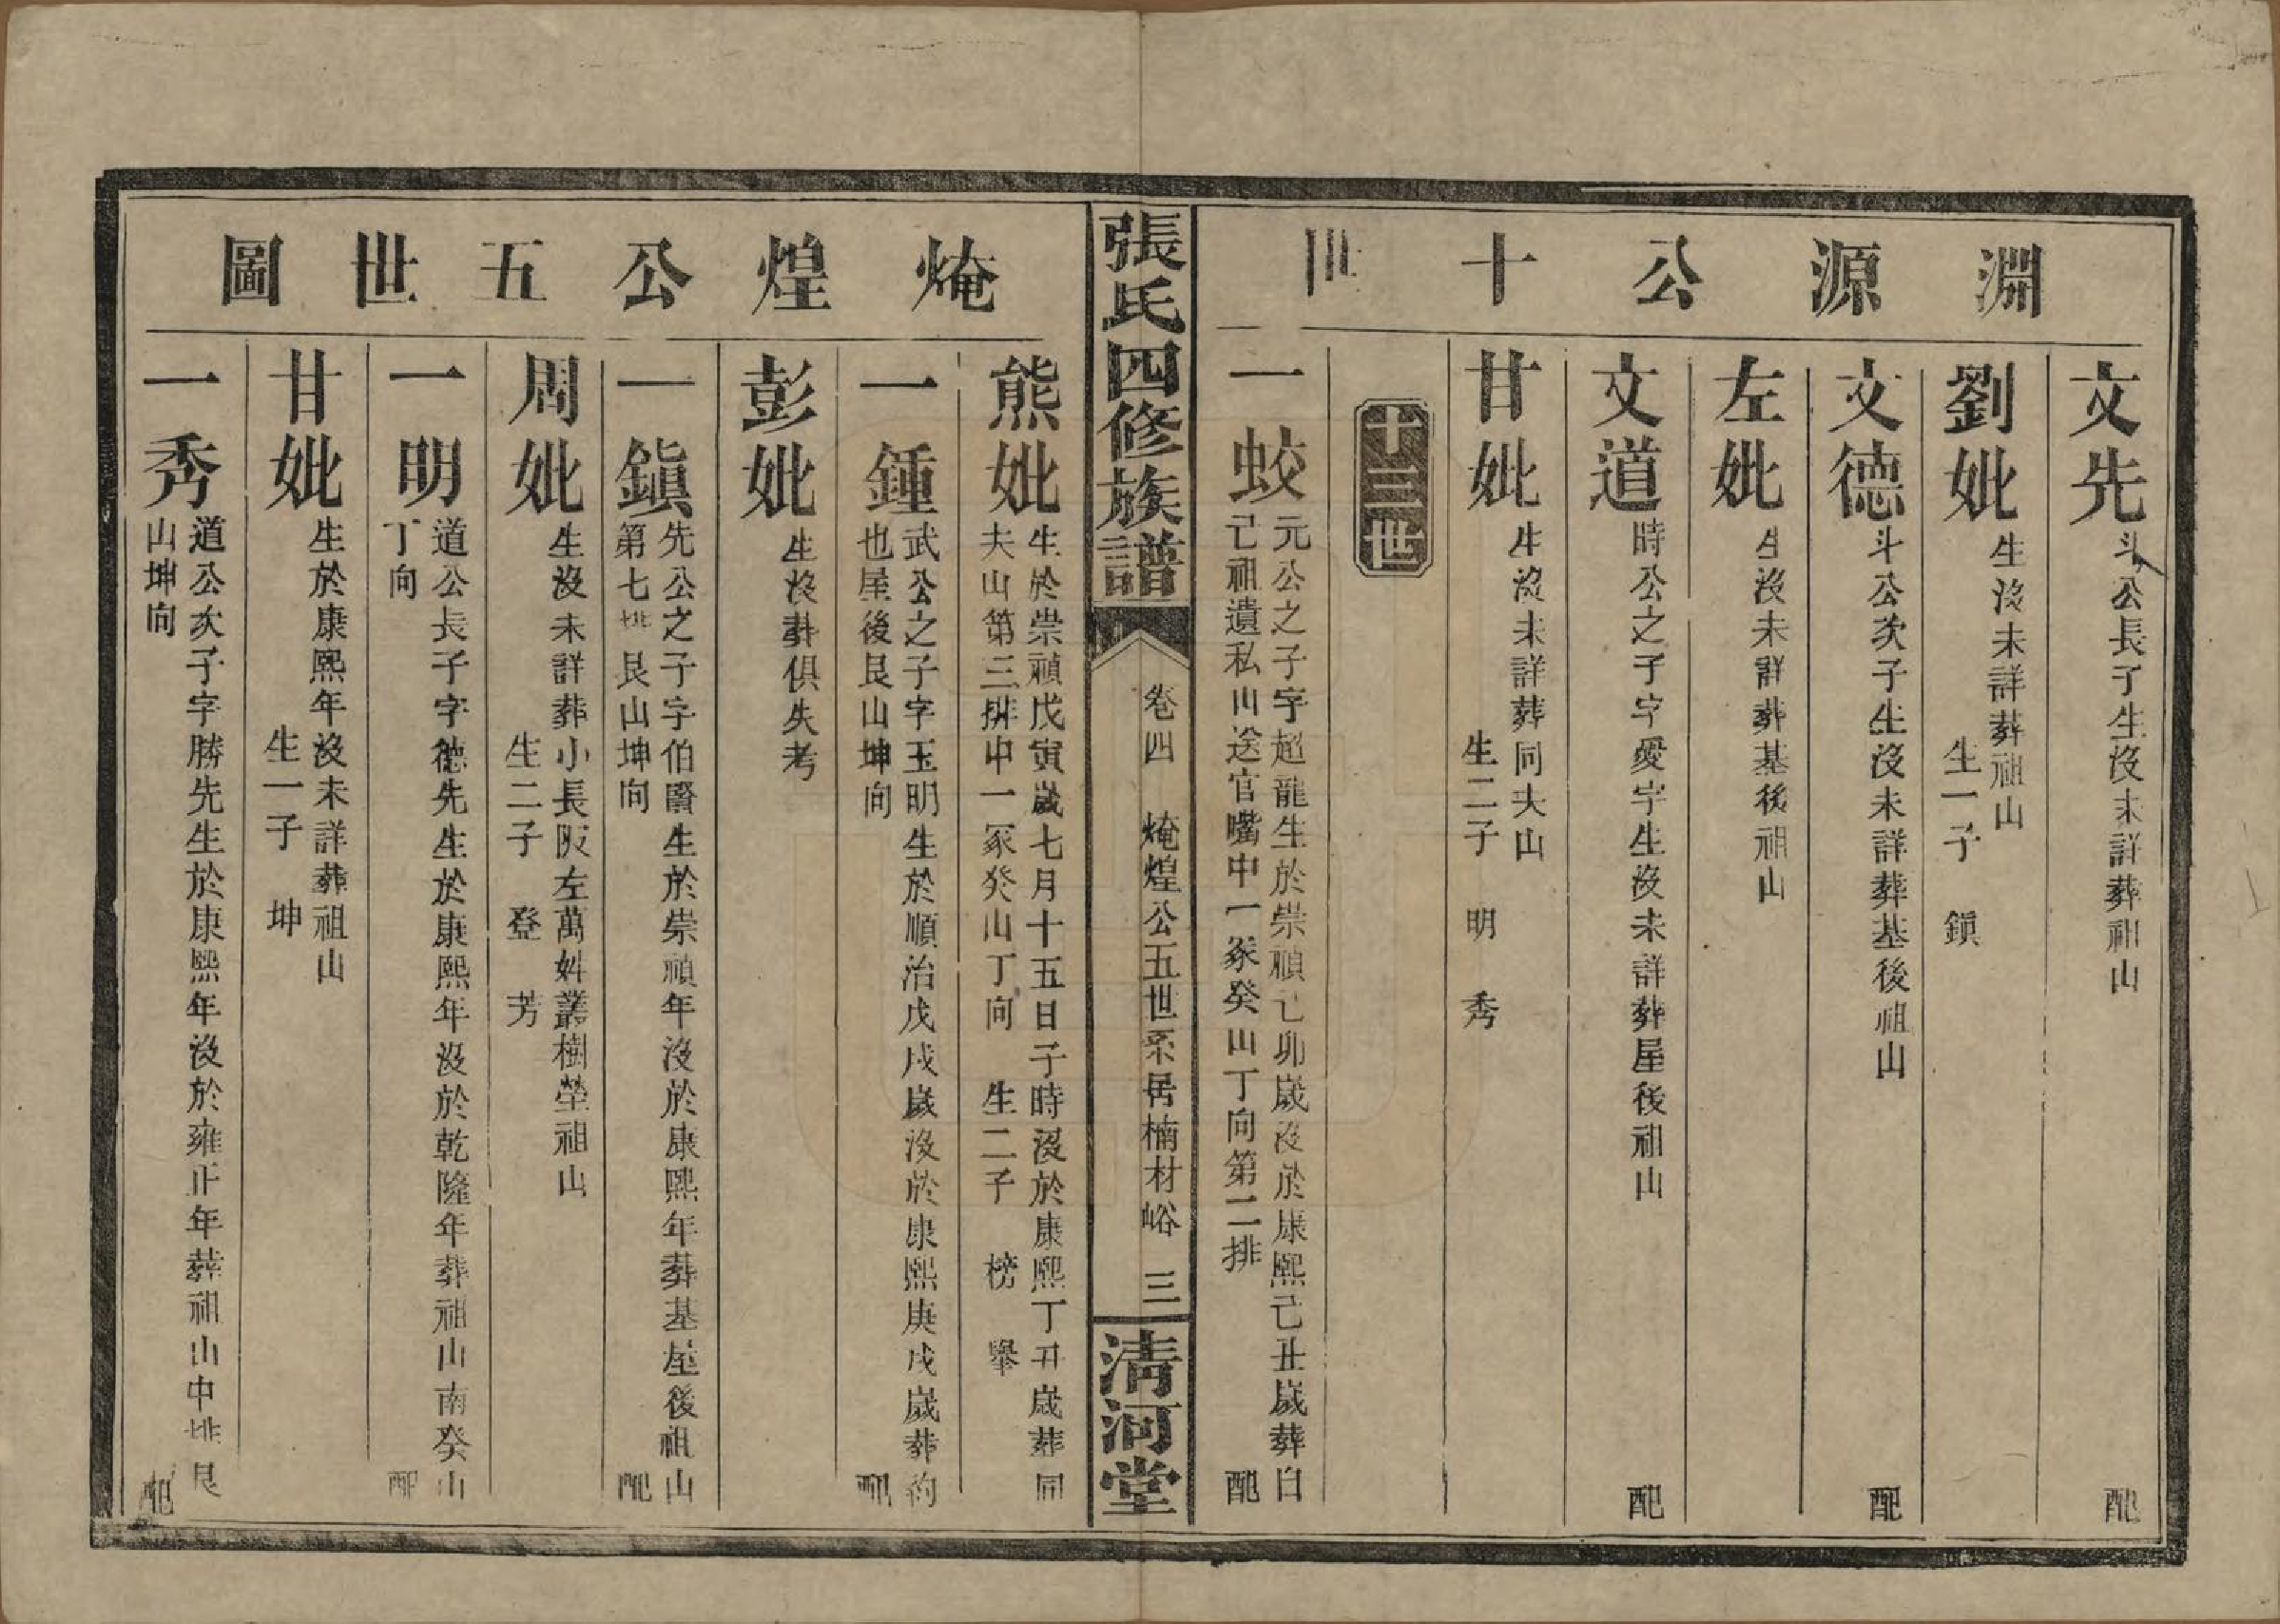 淵源公十三
文先
斗公長子生沒未詳葬祖山
配
劉妣
生沒未詳葬祖山
生一子 鎮
文德
斗公次子生沒未詳葬基後祖山
配
左妣
生沒未詳葬基後祖山
文道
時公之子字愛宇生沒未詳葬屋後祖山
配
甘妣
生沒未詳葬同夫山
生二子 明 秀
十三世
一蛟
元公之子字超龍生於崇禎己卯歲沒於康熙己丑歲葬白
己祖遺私山送官嘴中一冢癸山丁向第二排
配
張氏四修族譜
卷四 㷈煌公五世系居楠材峪 三
淸河堂
㷈煌公五世圖
熊妣
生於崇禎戊寅歲七月十五日子時沒於康熙丁丑歲葬同
夫山第三排中一冢癸山丁向 生二子 榜 舉
一鍾
武公之子字玉明生於順治戊戌歲沒於康熙庚戌歲葬約
也屋後艮山坤向
配
彭妣
生沒葬俱失考
一鎮
先公之子字伯賢生於崇禎年沒於康熙年葬基屋後祖山
第七排艮山坤向
配
周妣
生沒未詳葬小長阪左萬姓叢樹塋祖山
生二子 登 芳
一明
道公長子字德先生於康熙年沒於乾隆年葬祖山南癸山
丁向
配
甘妣
生於康熙年沒未詳葬祖山
生一子 坤
一秀
道公次子字勝先生於康熙年沒於雍正年葬祖山中排艮
山坤向
配